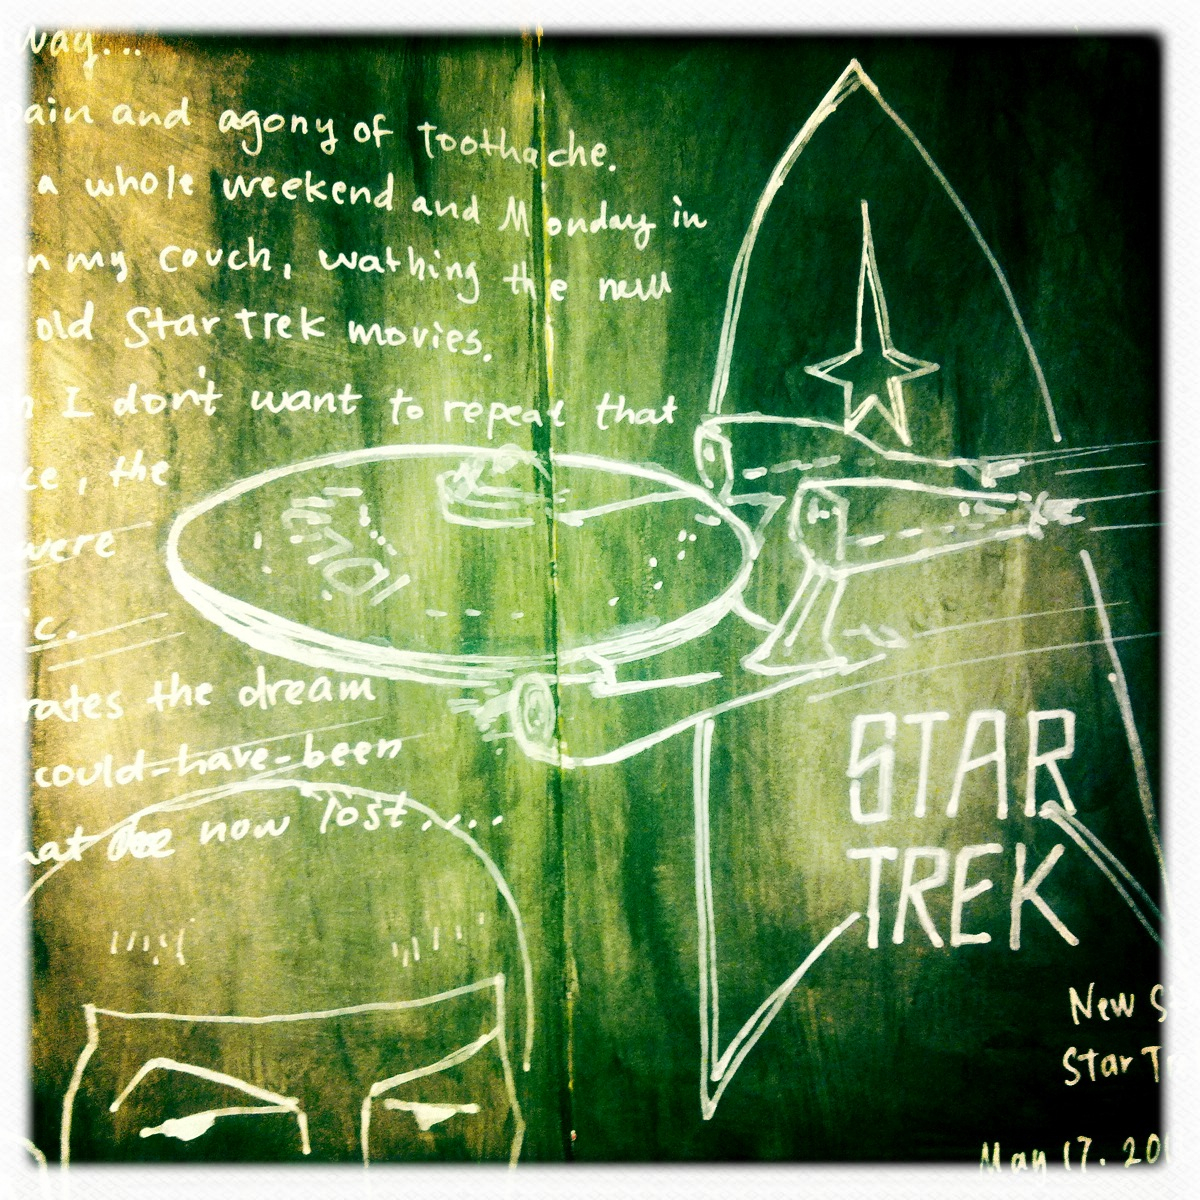 way...
ain and agony of toothache.
a whole weekend and Monday in
n my couch, wathing the new
old Star Trek movies.
I don't want to repeat that
ce, the
were
ic.
rates the dream
could-have-been
hat now lost....
1701
STAR
TREK
New S
Star T
May 17. 201